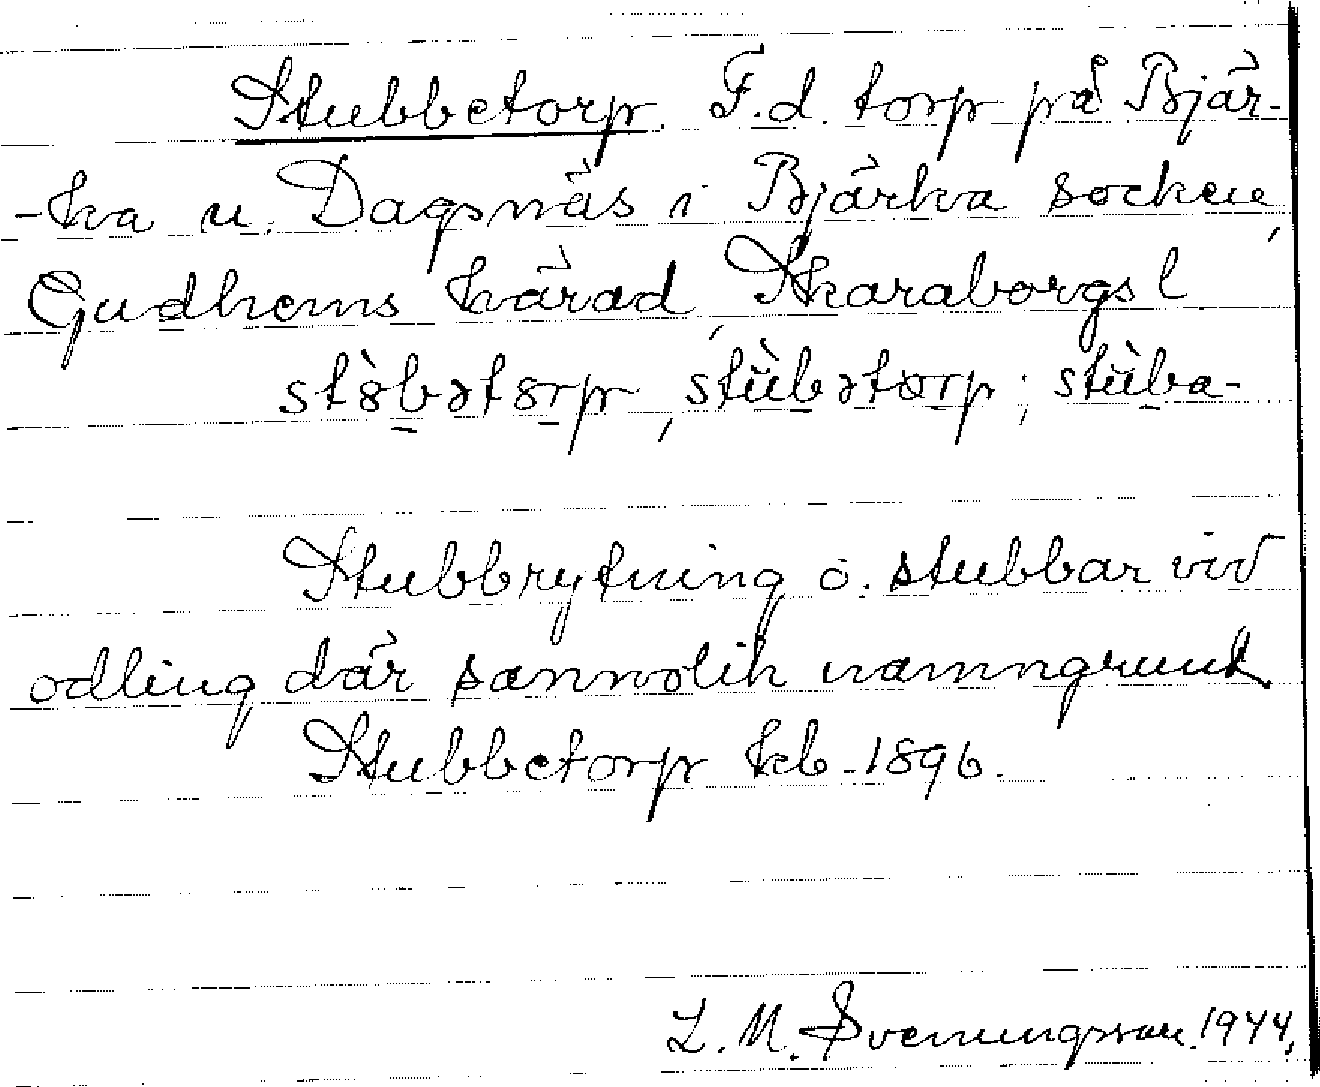 Stubbetorp. F.d. torp på Bjär-
-ka u. Dagsnäs i Bjärka socken,
Gudhems härad, Skaraborgs l
stòbətorp, stùbətorp; stùba-
Stubbrytning o. stubbar vid
odling där sannolik namngrund
Stubbetorp kb. 1896.
L. M. Svenungsson. 1944.